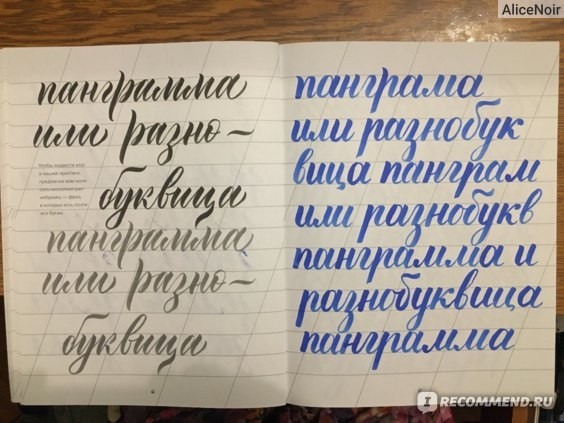 AliceNoir
панграмма
или разно~
буквица
панграмма
или разно~
буквица
панграма
или разнобук
вица панграм
или разнобукв
панграмма и
разнобуквица
панграмма
I RECOMMEND.RU